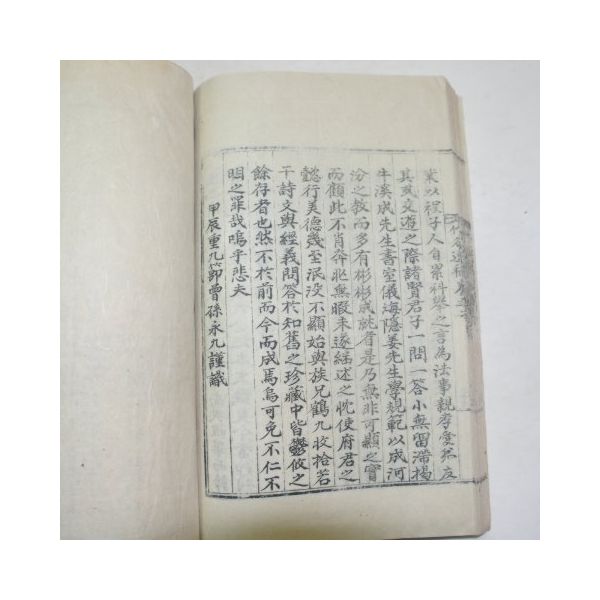 來以程子人自累科擧之言為法事親孝愛然友
其或交遊之際諸賢君子一問一答小無留滯揭
牛溪成先生書室儀海隱姜先生學規範以成河
汾之教而多有彬彬成就者是乃無非可顯之實
而顧此不肖奔汩無暇未遂繼述之忱使府君之
懿行美德幾至泯没不顯始與族兄鶴九收拾若
干詩文與經義問答於知舊之珍藏中皆鬱攸之
餘存者也然不於前而今而成焉烏可免不仁不
明之罪哉嗚乎悲夫
甲辰重九節曾孫永九謹識